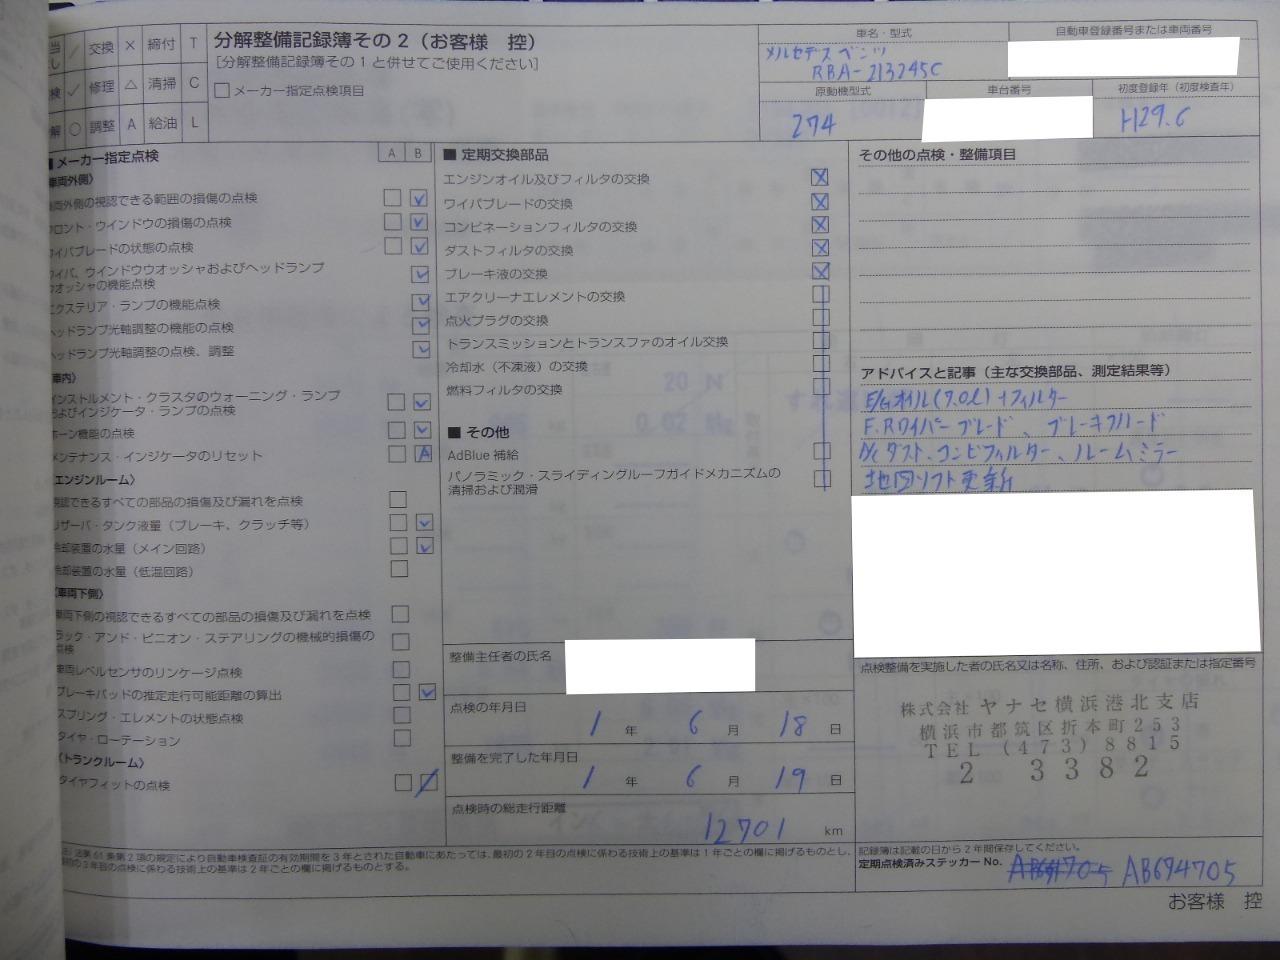 交換 × 締付 T
検 ✓ 修理 △ 清掃 C
解 ○ 調整 A 給油 L
分解整備記録簿その2（お客様 控）
［分解整備記録簿その1と併せてご使用ください］
□ メーカー指定点検項目
車名・型式
メルセデスベンツ
RBA-213245C
自動車登録番号または車両番号
原動機型式
274
車台番号
初度登録年（初度検査年）
H29.6
■ メーカー指定点検
A B
車両外側〉
車両外側の視認できる範囲の損傷の点検
フロント・ウインドウの損傷の点検
ワイパブレードの状態の点検
ワイパ、ウインドウウオッシャおよびヘッドランプ
ウオッシャの機能点検
エクステリア・ランプの機能点検
ヘッドランプ光軸調整の機能の点検
ヘッドランプ光軸調整の点検、調整
車内〉
インストルメント・クラスタのウォーニング・ランプ
およびインジケータ・ランプの点検
ホーン機能の点検
メンテナンス・インジケータのリセット A
エンジンルーム〉
視認できるすべての部品の損傷及び漏れを点検
リザーバ・タンク液量（ブレーキ、クラッチ等）
冷却装置の水量（メイン回路）
冷却装置の水量（低温回路）
〈車両下側〉
車両下側の視認できるすべての部品の損傷及び漏れを点検
ラック・アンド・ピニオン・ステアリングの機械的損傷の
点検
車両レベルセンサのリンケージ点検
ブレーキパッドの推定走行可能距離の算出
スプリング・エレメントの状態点検
タイヤ・ローテーション
〈トランクルーム〉
タイヤフィットの点検
■ 定期交換部品
エンジンオイル及びフィルタの交換
ワイパブレードの交換
コンビネーションフィルタの交換
ダストフィルタの交換
ブレーキ液の交換
エアクリーナエレメントの交換
点火プラグの交換
トランスミッションとトランスファのオイル交換
冷却水（不凍液）の交換
燃料フィルタの交換
■ その他
AdBlue 補給
パノラミック・スライディングルーフガイドメカニズムの
清掃および潤滑
整備主任者の氏名
点検の年月日
1 年 6 月 18 日
整備を完了した年月日
1 年 6 月 19 日
点検時の総走行距離
12701 km
その他の点検・整備項目
アドバイスと記事（主な交換部品、測定結果等）
E/Gオイル(7.0ℓ)+フィルター
F.Rワイパーブレード、ブレーキフルード
A/Cダスト、コンビフィルター、ルームミラー
地図ソフト更新
点検整備を実施した者の氏名又は名称、住所、および認証または指定番号
株式会社 ヤナセ横浜港北支店
横浜市都筑区折本町253
TEL (473) 8815
2 3382
注）法第61条第2項の規定により自動車検査証の有効期間を3年とされた自動車にあたっては、最初の2年目の点検に係わる技術上の基準は1年ごとの欄に掲げるものとし、
最初の3年目の点検に係わる技術上の基準は2年ごとの欄に掲げるものとする。
記録簿は記載の日から2年間保存してください。
定期点検済みステッカー No. AB694705
お客様 控